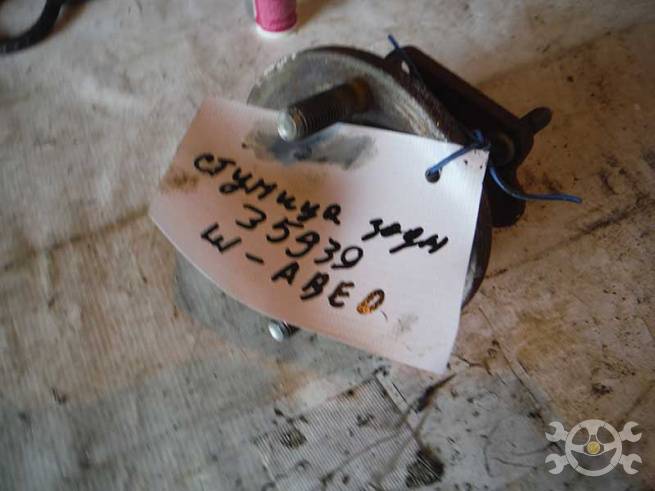 ступица задн
35939
Ш-АВЕО